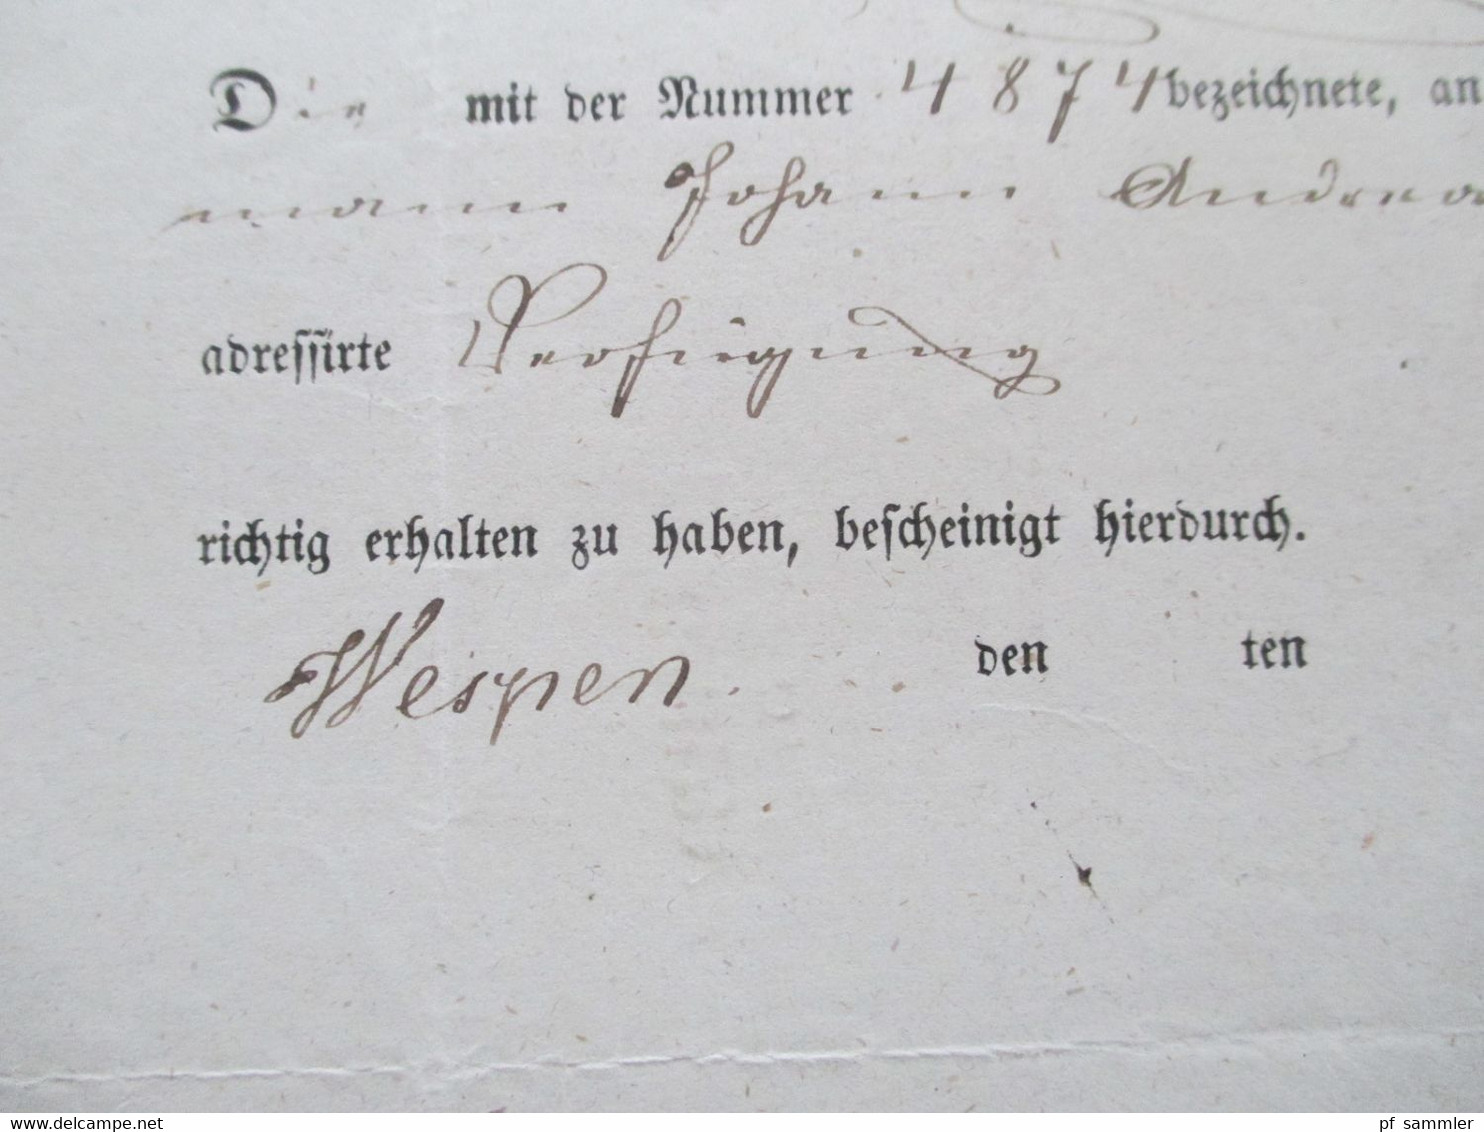 Die mit der Nummer 4874 bezeichnete, an
mann Johann Andrea
adressirte Verfügung
richtig erhalten zu haben, bescheinigt hierdurch.
Wespen den ten
www.delcampe.net
pf_sammler